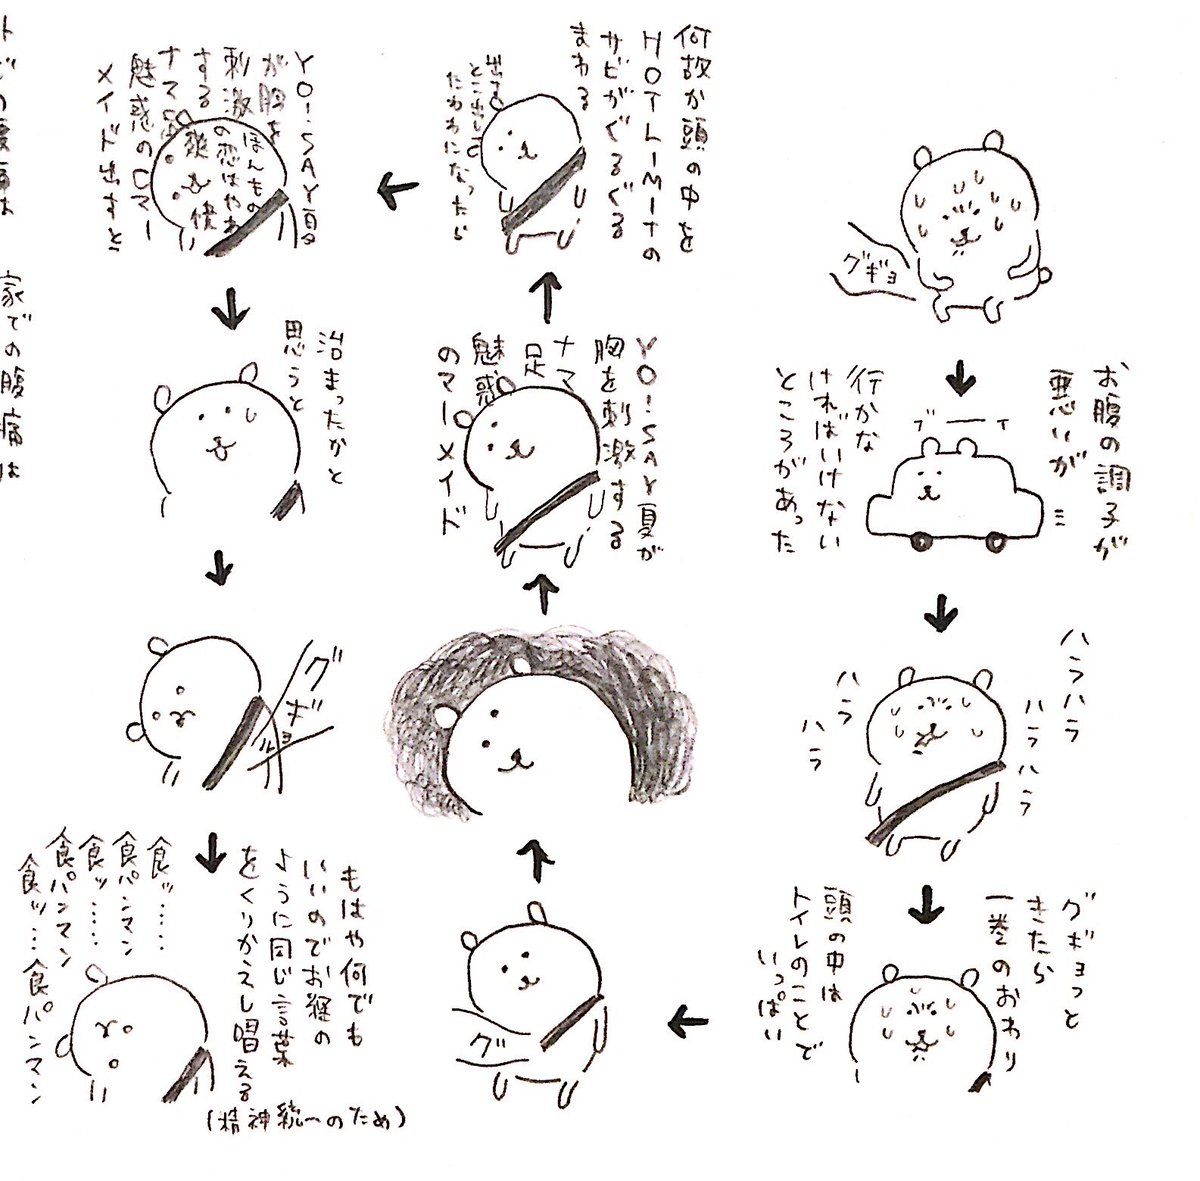 グギョ
お腹の調子が
悪いが
行かな
ければいけない
ところがあった
ハラハラ
ハラハラ
ハラ
ハラ
ハラ
グギョっと
きたら
一巻のおわり
頭の中は
トイレのことで
いっぱい
グ
YO!SAY夏が
胸を刺激する
ナマ足
魅惑
のマーメイド
何故か頭の中を
HOTLIMITの
サビがぐるぐる
まわる
出すとこ出して
たわわになったら
YO!SAY夏
が胸を
刺激
する
ナマ足
魅惑のマー
メイド出すとこ
ほんもの
の恋はやれ
爽快
治まったかと
思うと
グギョ
もはや何でも
いいのでお経の
ように同じ言葉
をくりかえし唱える
(精神統一のため)
食ッ……
食パンマン
食ッ……
食パンマン
食ッ…食パンマン
家での腹痛は